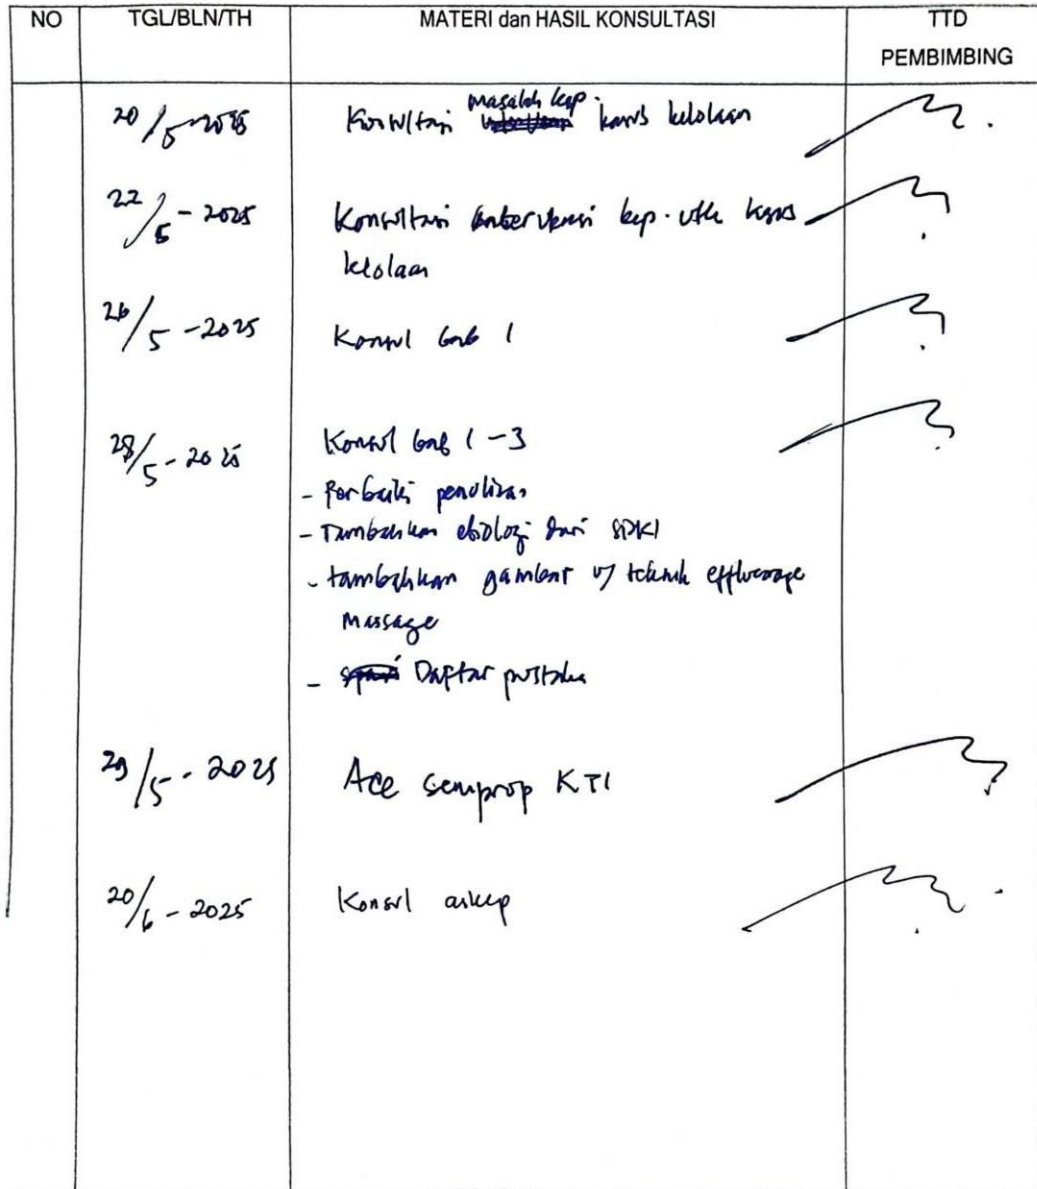 NO TGL/BLN/TH MATERI dan HASIL KONSULTASI TTD
PEMBIMBING
masalah kep.
20/5-2025 Konsultasi kasus kelolaan
22/5-2025 Konsultasi intervensi kep. utk kasus
kelolaan
26/5-2025 Konsul bab 1
28/5-2025 Konsul bab 1-3
- Perbaiki penulisan
- Tambahkan etiologi dari SDKI
- tambahkan gambar u/ teknik effluerage
massage
- Daftar pustaka
29/5-2025 Acc semprop KTI
20/6-2025 Konsul askep